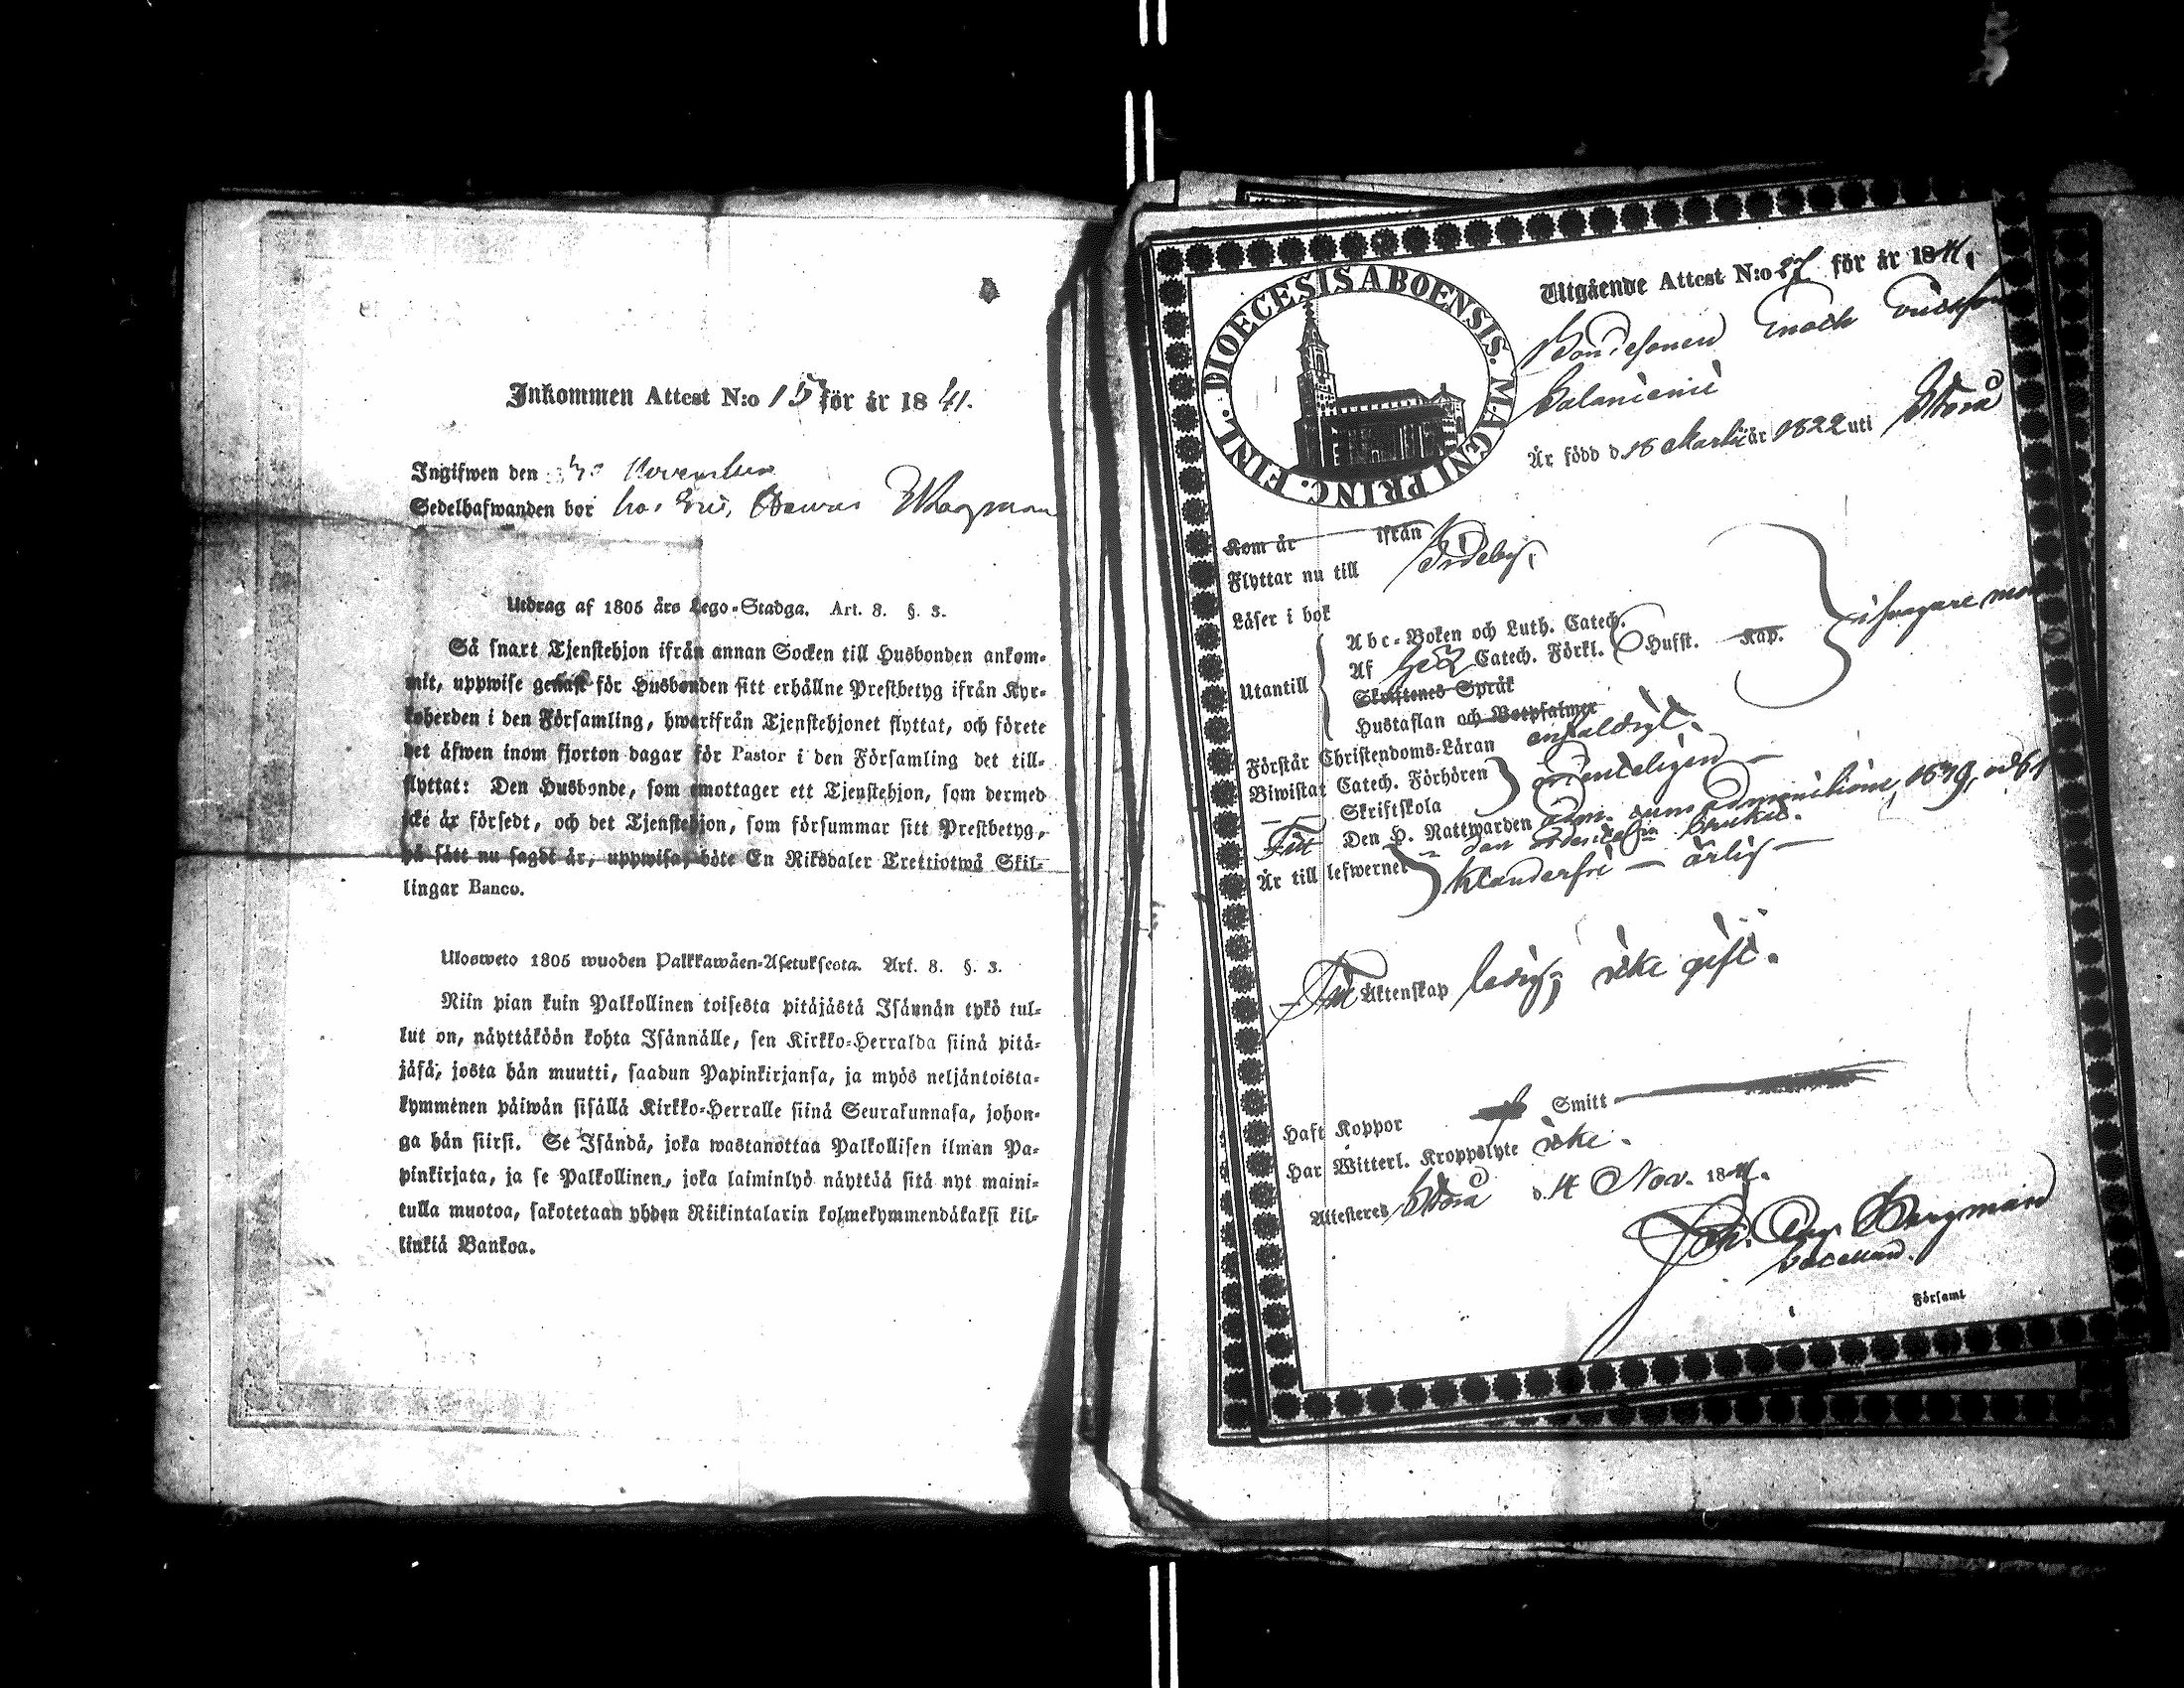 Inkommen Attest N:o 15 för år 1841.
Ingifwen den November
Sedelhafwanden bor hos
Utdrag af 1805 års Lego-Stadga. Art. 8. §. 3.
Så snart Tjenstehjon ifrån annan Socken till Husbonden ankom-
mit, uppwise genast för Husbonden sitt erhållne Prestbetyg ifrån Kyr-
koherden i den Församling, hwarifrån Tjenstehjonet flyttat, och förete
det äfwen inom fjorton dagar för Pastor i den Församling det till-
flyttat: Den Husbonde, som emottager ett Tjenstehjon, som dermed
icke är försedt, och det Tjenstehjon, som försummar sitt Prestbetyg,
på sätt nu sagdt är, uppwisa, böte En Riksdaler Trettiotwå Skil-
lingar Banco.
Ulosweto 1805 wuoden Palkkawäen-Asetuksesta. Art. 8. §. 3.
Niin pian kuin Palkollinen toisesta pitäjästä Isännän tykö tul-
lut on, näyttäköön kohta Isännälle, sen Kirkko-Herralda siinä pitä-
jäsä, josta hän muutti, saadun Papinkirjansa, ja myös neljäntoista-
kymmenen päiwän sisällä Kirkko-Herralle siinä Seurakunnasa, johon-
ga hän siirsi. Se Isändä, joka wastanottaa Palkollisen ilman Pa-
pinkirjata, ja se Palkollinen, joka laiminlyö näyttää sitä nyt maini-
tulla muotoa, sakotetaan yhden Riikintalarin kolmekymmendäkaksi kil-
linkiä Bankoa.
DIOECESIS ABOENSIS. MAGNI PRINC. FINL.
Utgående Attest N:o 27 för år 1841.
Bondesonen Enoch Ericsson
Är född d. 18 Martii år 1822 uti Storå
Kom år ifrån
Flyttar nu till
Läser i bok
Abc-Boken och Luth. Catech.
Utantill Af Catech. Förkl. Husst. Kap. i svagare mon
Skriftenes Språk
Hustaflan och Botpsalmer
Förstår Christendoms-Läran enfaldigt.
Biwistat Catech. Förhören ordenteligen
Skriftskola
Den H. Nattwarden adm. cum admonitione 1839, och
den ordentel:n brukat.
Är till lefwernet klanderfri — ärlig —
Till Äktenskap ledig; icke gift.
Haft Koppor Smitt
Har Witterl. Kroppslyte icke.
Attesteres Storå d. 4 Nov. 1841.
Bergman
Församl